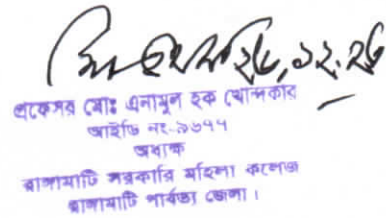 ২৮.১২.২৫
প্রফেসর মোঃ এনামুল হক খোন্দকার
আইডি নং-৯৬৭৭
অধ্যক্ষ
রাঙ্গামাটি সরকারি মহিলা কলেজ
রাঙ্গামাটি পার্বত্য জেলা।